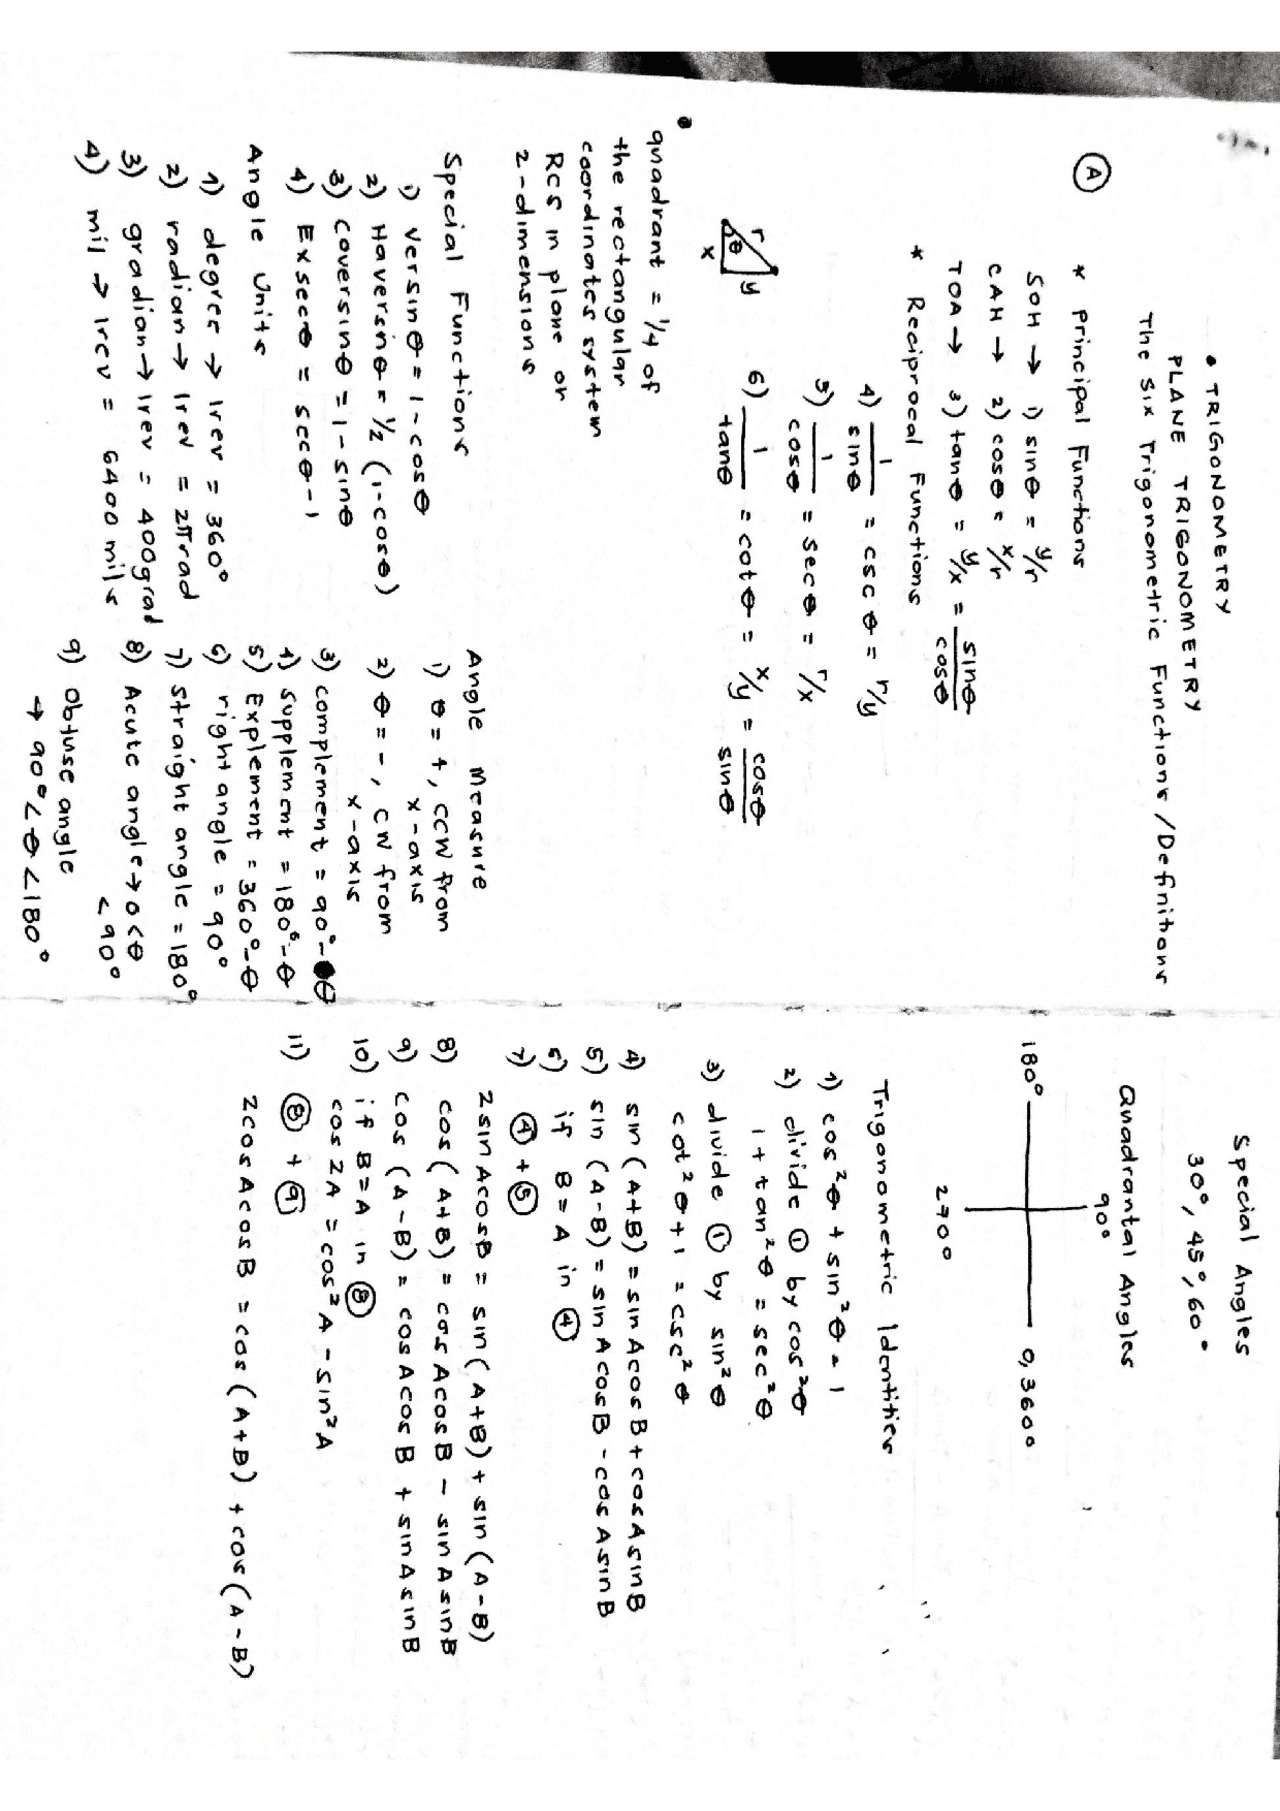 • TRIGONOMETRY
PLANE TRIGONOMETRY
The Six Trigonometric Functions/Definitions
Ⓐ * principal Functions
SOH → 1) sinθ = y/r
CAH → 2) cosθ = x/r
TOA → 3) tanθ = y/x = sinθ/cosθ
* Reciprocal Functions
4) 1/sinθ = cscθ = r/y
5) 1/cosθ = secθ = r/x
6) 1/tanθ = cotθ = x/y = cosθ/sinθ
r
θ
y
x
•
quadrant = 1/4 of
the rectangular
coordinates system
RCS in plane or
2-dimensions
Special Functions
1) versinθ = 1-cosθ
2) Haversinθ = 1/2 (1-cosθ)
3) coversinθ = 1-sinθ
4) Exsecθ = secθ-1
Angle Units
1) degree → 1rev = 360°
2) radian → 1rev = 2πrad
3) gradian → 1rev = 400grad
4) mil → 1rev = 6400 mils
Angle Measure
1) θ = +, CCW from
x-axis
2) θ = -, CW from
x-axis
3) complement = 90°-θ
4) supplement = 180°-θ
5) Explement = 360°-θ
6) right angle = 90°
7) straight angle = 180°
8) Acute angle → 0<θ
<90°
9) Obtuse angle
→ 90°<θ<180°
Special Angles
30°, 45°, 60°
Quadrantal Angles
90°
180°
0, 360°
270°
Trigonometric Identities
1) cos²θ + sin²θ = 1
2) divide ① by cos²θ
1 + tan²θ = sec²θ
3) divide ① by sin²θ
cot²θ + 1 = csc²θ
4) sin(A+B) = sinAcosB + cosAsinB
5) sin(A-B) = sinAcosB - cosAsinB
6) if B = A in ④
7) ④ + ⑤
2sinAcosB = sin(A+B) + sin(A-B)
8) cos(A+B) = cosAcosB - sinAsinB
9) cos(A-B) = cosAcosB + sinAsinB
10) if B=A in ⑧
cos2A = cos²A - sin²A
11) ⑧ + ⑨
2cosAcosB = cos(A+B) + cos(A-B)